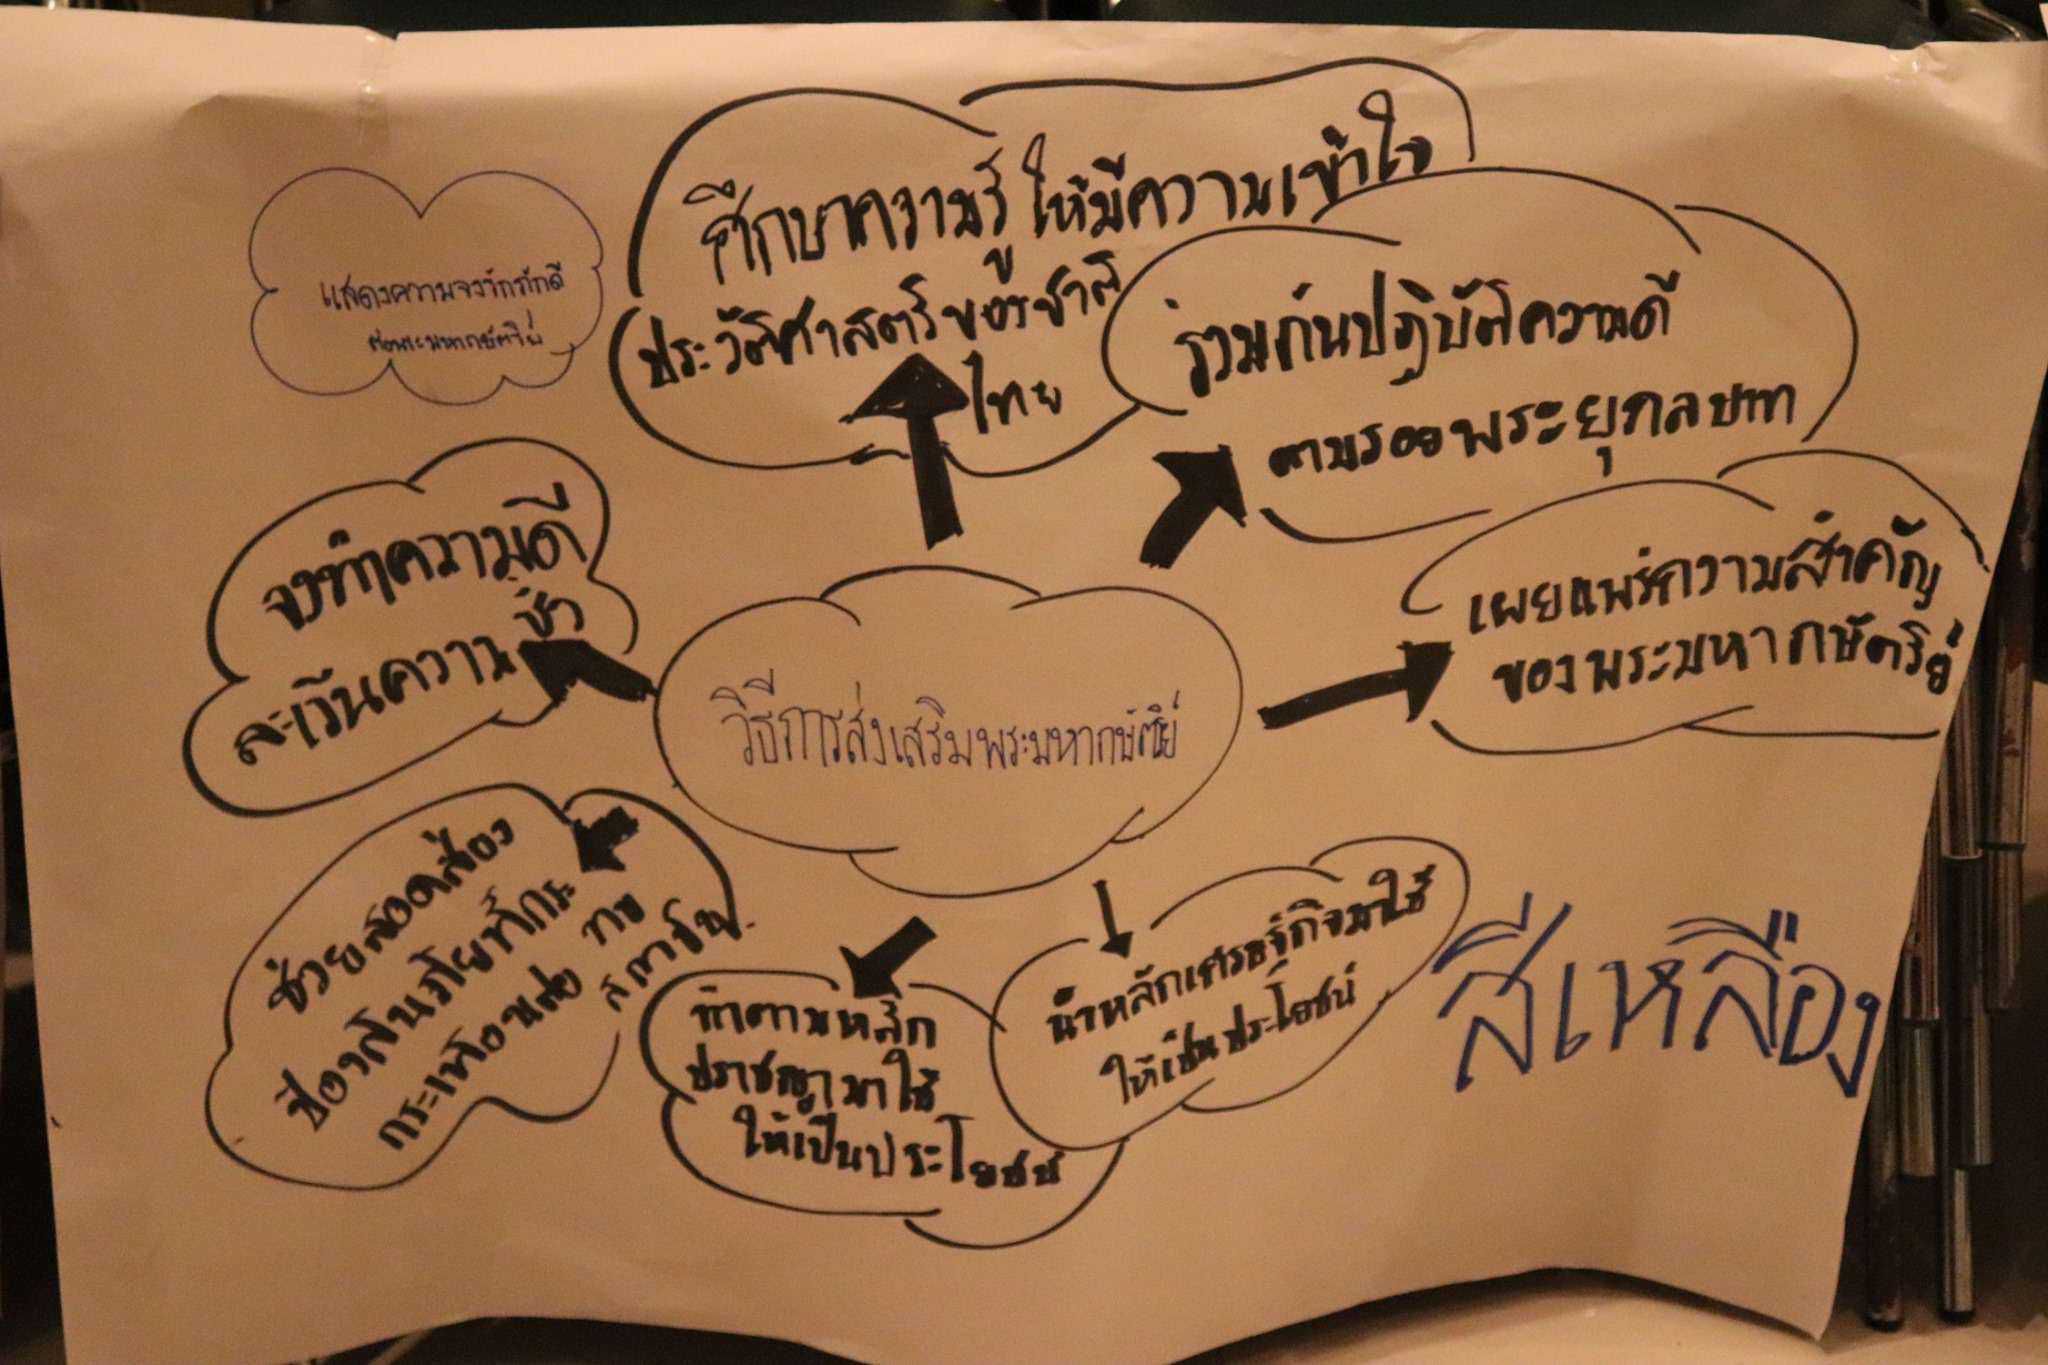 ศึกษาความรู้ ให้มีความเข้าใจ
ประวัติศาสตร์ของชาติ
ไทย
แสดงความจงรักภักดี
ต่อพระมหากษัตริย์
ร่วมกันปฏิบัติความดี
ตามรอยพระยุคลบาท
จงทำความดี
ละเว้นความชั่ว
เผยแพร่ความสำคัญ
ของพระมหากษัตริย์
วิธีการส่งเสริมพระมหากษัตริย์
ช่วยสอดส่อง
ป้องกันภัยที่กระ
กระเทือนต่อ
สถาบัน
ทำตามหลัก
ปราชญามาใช้
ให้เป็นประโยชน์
นำหลักเศรษฐกิจมาใช้
ให้เป็นประโยชน์
สีเหลือง